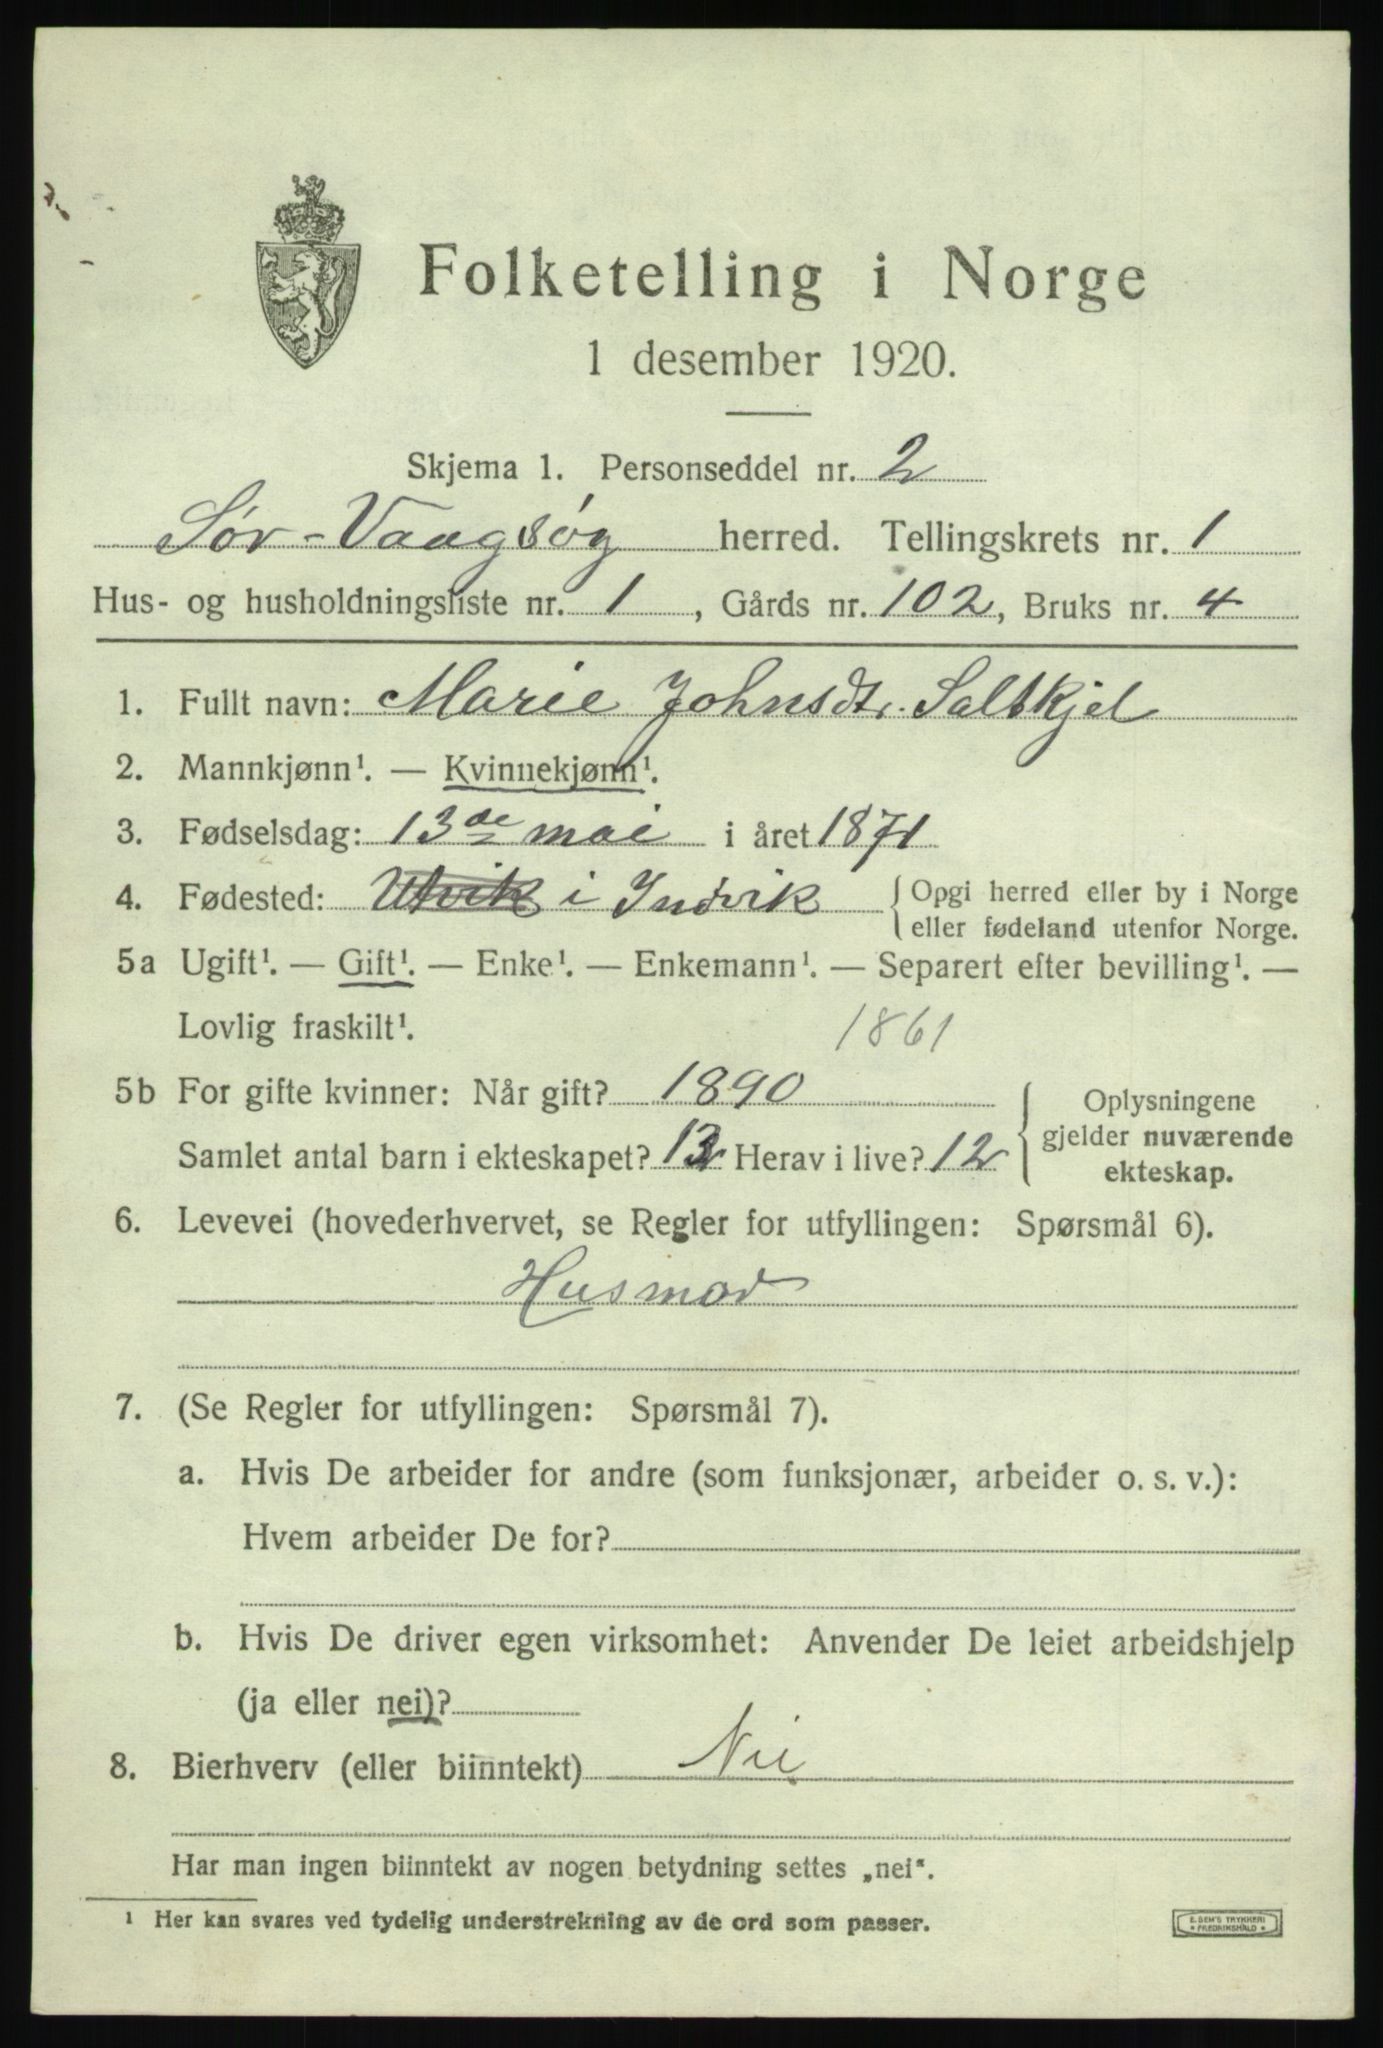 Folketelling i Norge
1 desember 1920.
Skjema 1. Personseddel nr. 2
Sør-Vaagsøy herred. Tellingskrets nr. 1
Hus- og husholdningsliste nr. 1, Gårds nr. 102, Bruks nr. 4
1. Fullt navn: Marie Johnsdtr. Saltkjel
2. Mannkjønn¹. — Kvinnekjønn¹.
3. Fødselsdag: 13de mai i året 1871
4. Fødested: Utvik i Indvik { Opgi herred eller by i Norge
eller fødeland utenfor Norge.
5a Ugift¹. — Gift¹. — Enke¹. — Enkemann¹. — Separert efter bevilling¹. —
Lovlig fraskilt¹.
1861
5b For gifte kvinner: Når gift? 1890
Samlet antal barn i ekteskapet? 12 Herav i live? 12
Oplysningene
gjelder nuværende
ekteskap.
6. Levevei (hovederhvervet, se Regler for utfyllingen: Spørsmål 6).
Husmor
7. (Se Regler for utfyllingen: Spørsmål 7).
a. Hvis De arbeider for andre (som funksjonær, arbeider o. s. v.):
Hvem arbeider De for?
b. Hvis De driver egen virksomhet: Anvender De leiet arbeidshjelp
(ja eller nei)?
8. Bierhverv (eller biinntekt) Nei
Har man ingen biinntekt av nogen betydning settes „nei“.
¹ Her kan svares ved tydelig understrekning av de ord som passer.
E. SEM'S TRYKKERI
* FREDRIKSHALD *